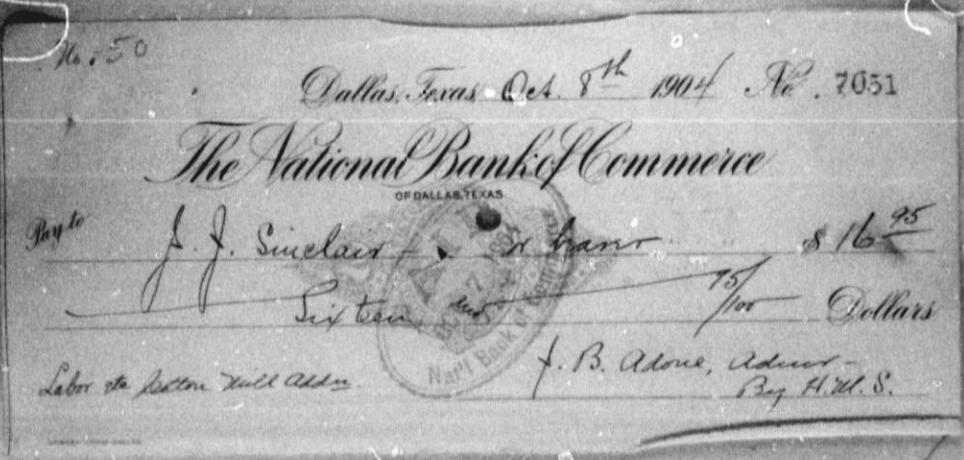 No. 50
Dallas, Texas, Oct. 8th 1904 No. 7051
The National Bank of Commerce
OF DALLAS, TEXAS.
Pay to J. J. Sinclair or $ 16 95
Sixteen and 95/100 Dollars
Nat'l Bank of
Labor etc Cotton Mill Addn
J. B. Adoue, Admr
By H.M.S.